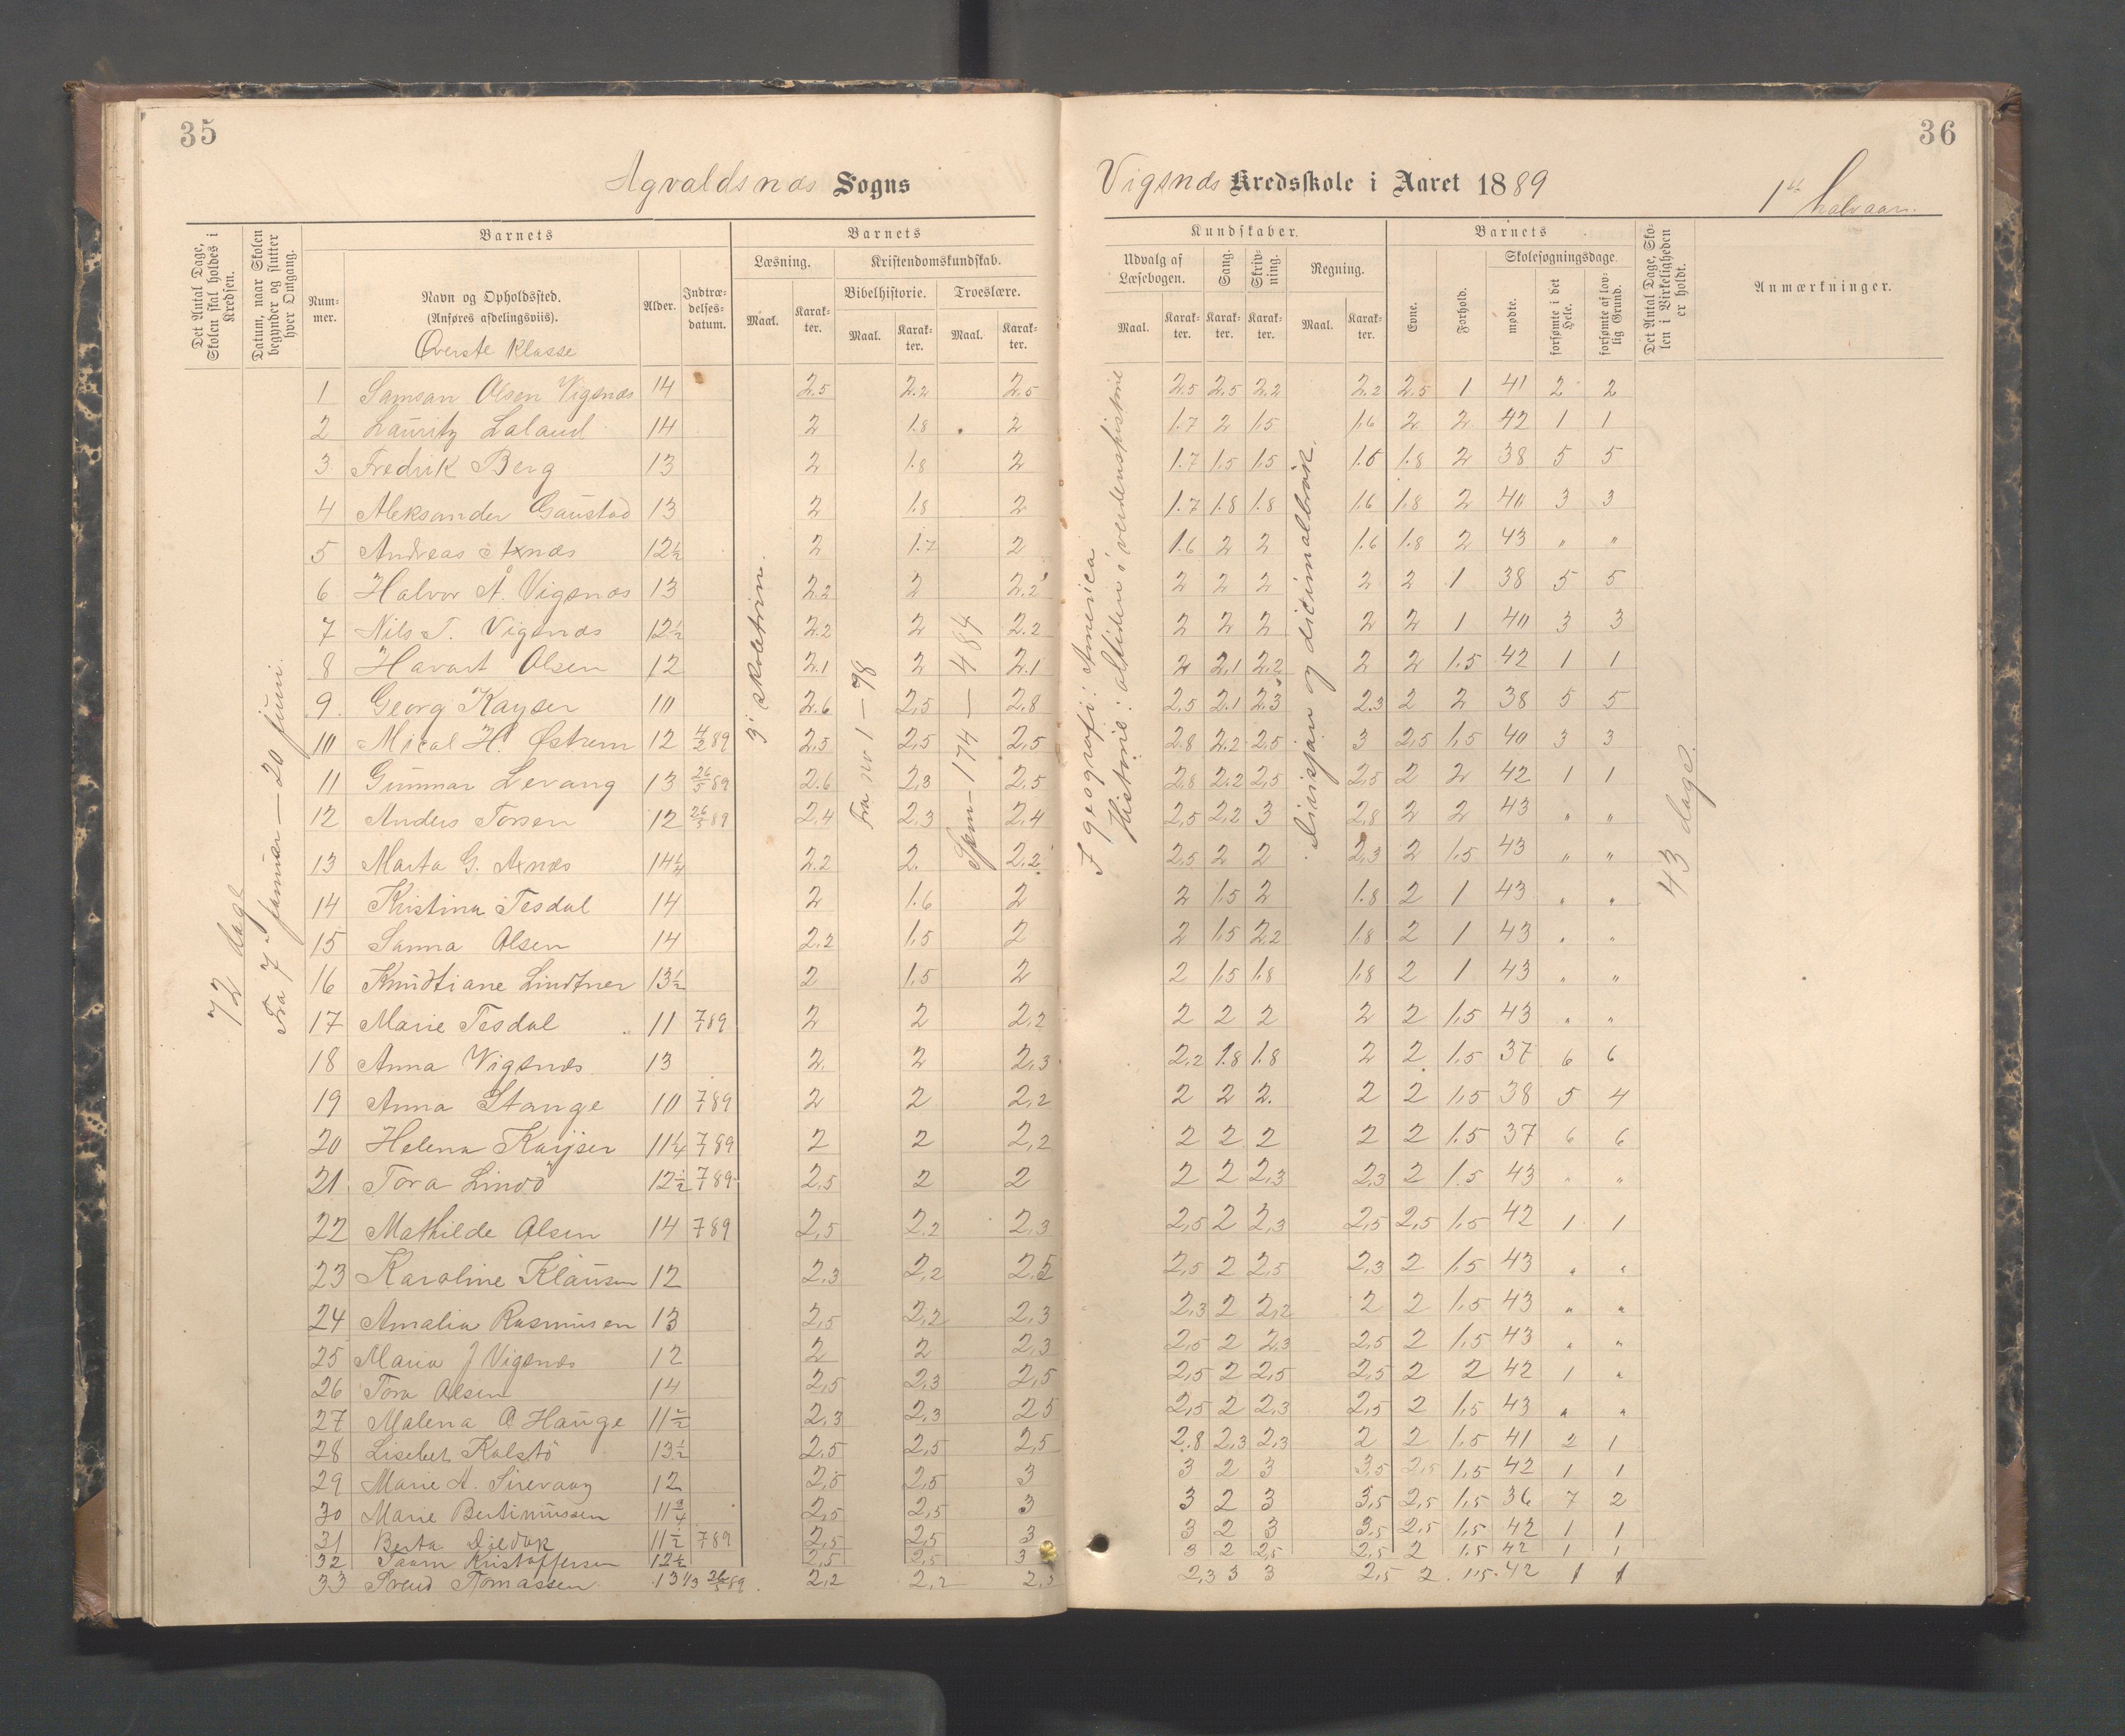 35
36
Agvaldsnæs Sogns
Vigsnæs Kredsskole i Aaret 1889
1ste halvaar.
Det Antal Dage, Skolen skal holdes i Kredsen.
Datum, naar Skolen begynder og slutter hver Omgang.
Barnets
Num-mer.
Navn og Opholdssted.
(Anføres afdelingsviis).
Øverste Klasse
Alder.
Indtræ-delses-datum.
Barnets
Læsning.
Kristendomskundskab.
Bibelhistorie.
Troeslære.
Maal. Karak-ter. Maal. Karak-ter. Maal. Karak-ter.
Kundskaber.
Udvalg af Læsebogen.
Sang.
Skriv-ning.
Regning.
Maal. Karak-ter. Karak-ter. Karak-ter. Maal. Karak-ter.
Barnets
Evne.
Forhold.
Skolesøgningsdage.
mødte.
forsømte i det Hele.
forsømte af lov-lig Grund.
Det Antal Dage, Sko-len i Virkeligheden er holdt.
Anmærkninger.
72 dage
Fra 7 januar — 20 juni.
3' skoletrin.
Fra no 1 — 78
Spm — 174 — 484
I geografi: America
Historie: oltiden i verdenshistorie
Divisjon og dicimalbrøk.
43 dage.
1 Samson Olsen Vigsnæs 14 2.5 2.2 2.5 2.5 2.5 2.2 2.2 2.5 1 41 2 2
2 Lauritz Laland 14 2 1.8 2 1.7 2 1.5 1.6 2 2 42 1 1
3 Fredrik Berg 13 2 1.8 2 1.7 1.5 1.5 1.6 1.8 2 38 5 5
4 Aleksander Gaustad 13 2 1.8 2 1.7 1.8 1.8 1.6 1.8 2 40 3 3
5 Andreas Axnæs 12½ 2 1.7 2 1.6 2 2 1.6 1.8 2 43 " "
6 Halvor A. Vigsnæs 13 2.2 2 2.2 2 2 2 2 2 1 38 5 5
7 Nils T. Vigsnæs 12½ 2.2 2 2.2 2 2 2 2 2 1 40 3 3
8 Havart Olsen 12 2.1 2 2.1 2 2.1 2.2 2 2 1.5 42 1 1
9 Georg Kayser 10 2.6 2.5 2.8 2.5 2.1 2.3 2.3 2 2 38 5 5
10 Mical H. Østrem 12 4/2 89 2.5 2.5 2.5 2.8 2.2 2.5 3 2.5 1.5 40 3 3
11 Gunnar Levang 13 26/5 89 2.6 2.3 2.5 2.8 2.2 2.5 2.5 2 2 42 1 1
12 Anders Torsen 12 26/5 89 2.4 2.3 2.4 2.5 2.2 3 2.8 2 2 43 " "
13 Marta G. Axnæs 14¼ 2.2 2. 2.2 2.5 2 2 2.3 2 1.5 43 " "
14 Kristina Tesdal 14 2 1.6 2 2 1.5 2 1.8 2 1 43 " "
15 Sanna Olsen 14 2.2 1.5 2 2 1.5 2.2 1.8 2 1 43 " "
16 Knudtiane Lindtner 13½ 2 1.5 2 2 1.5 1.8 1.8 2 1 43 " "
17 Marie Tesdal 11 789 2 2 2.2 2 2 2 2 2 1.5 43 " "
18 Anna Vigsnæs 13 2. 2 2.3 2.2 1.8 1.8 2 2 1.5 37 6 6
19 Anna Stange 10 789 2 2 2.2 2 2 2. 2 2 1.5 38 5 4
20 Helena Kaijser 11¼ 789 2 2 2.2 2 2 2 2 2 1.5 37 6 6
21 Tora Lindö 12½ 789 2.5 2 2 2 2 2.3 2.3 2 1.5 43 " "
22 Mathilde Olsen 14 789 2.5 2.2 2.3 2.5 2 2.3 2.5 2.5 1.5 42 1 1
23 Karoline Klausen 12 2.3 2.2 2.5 2.5 2 2.5 2.3 2 1.5 43 " "
24 Amalia Rasmusen 13 2.5 2.2 2.3 2.3 2 2.2 2 2 1.5 43 " "
25 Maria J Vigsnæs 12 2 2 2.3 2.5 2 2.3 2.5 2 1.5 43 " "
26 Tora Olsen 14 2.5 2.3 2.5 2.5 2 2.5 2.5 2 2 42 1 "
27 Malena O Hauge 11½ 2.3 2.3 2.5 2.5 2 2.3 2.5 2 1.5 43 " "
28 Lisebet Kalstö 13½ 2.5 2.5 2.5 2.8 2.3 2.3 2 2 1.5 41 2 1
29 Marie A. Sirevaag 12 2.5 2.5 3 3 2 3 3.5 2.5 1.5 42 1 1
30 Marie Bertinussen 11¾ 2.5 2.5 3 3 2 3 3.5 2.5 1.5 36 7 2
31 Berta 11½ 789 2.5 2.5 3 3 2 3 3.5 2.5 1.5 42 1 1
32 Kristoffersen 12½ 2.5 2.5 3 3 2 2.5 2.5 2 1.5 42 1 1
33 Svend Tomassen 13 1/3 26/5 89 2.2 2.2 2.3 2.3 3 3 2.5 2 1.5 42 1 1